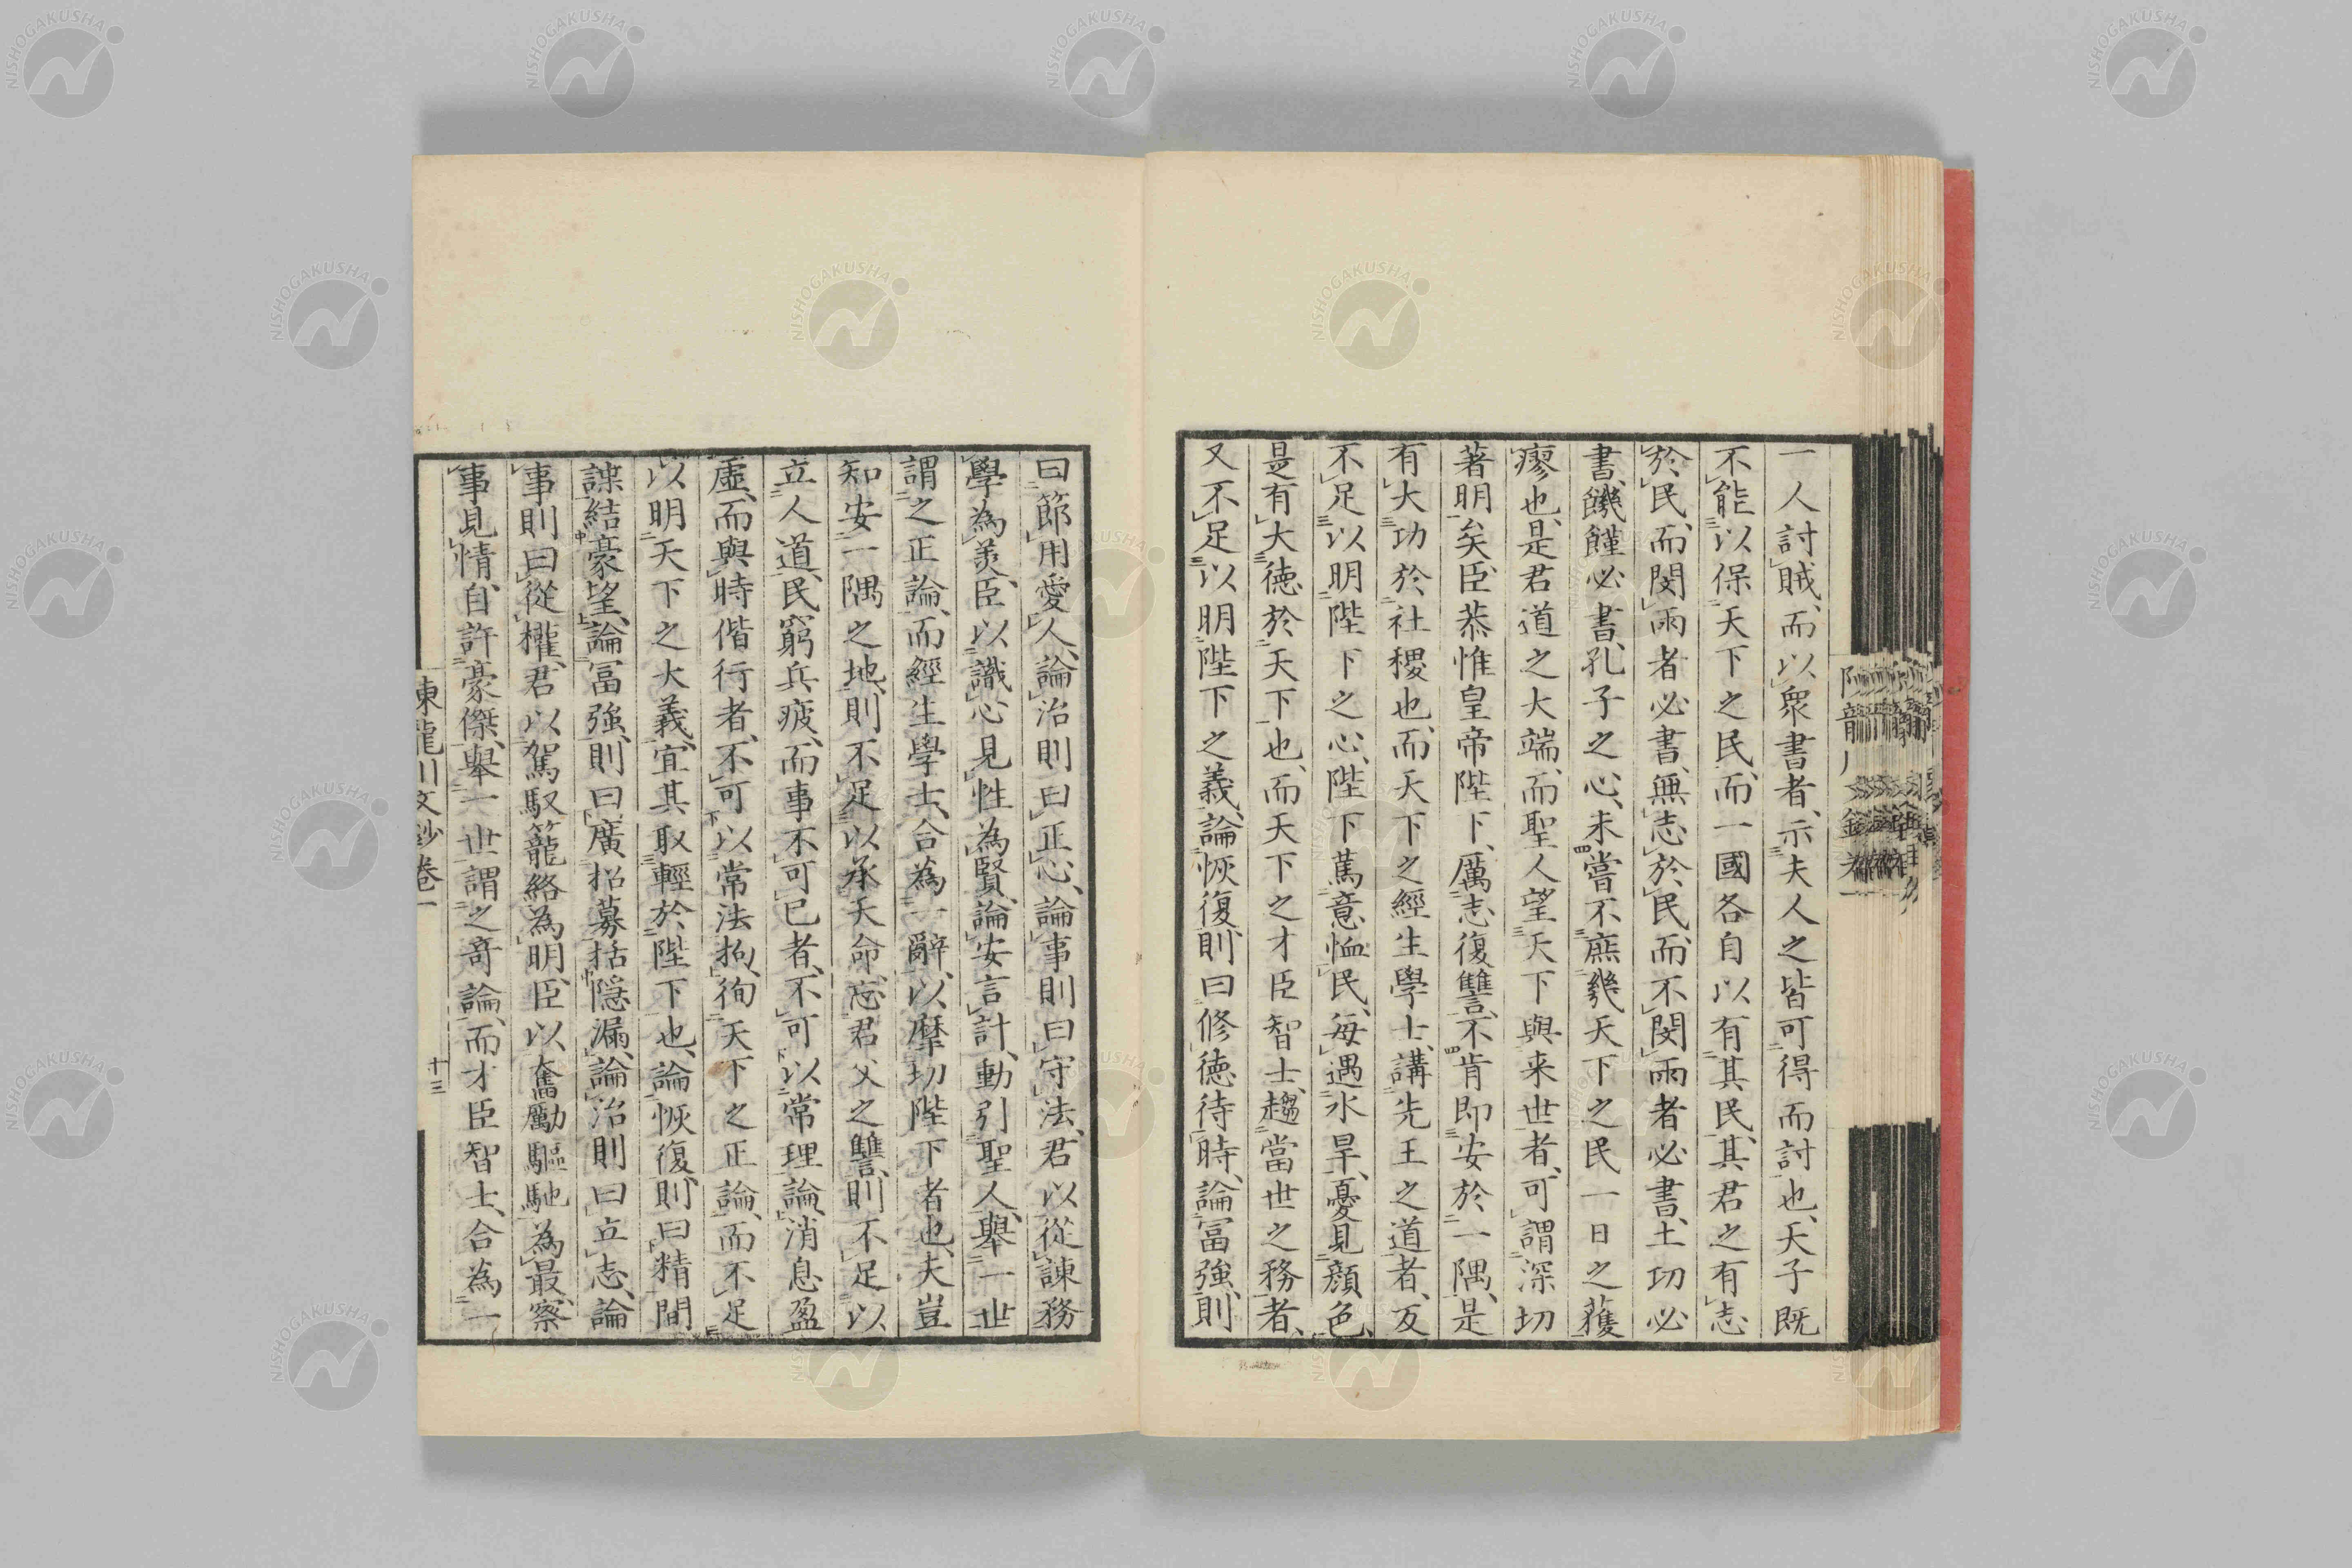 一人討賊、而以衆書者、示夫人之皆可得而討也、天子既
不能以保天下之民、而一國各自以有其民、其君之有志
於民、而閔雨者必書、無志於民、而不閔雨者必書、土功必
書、饑饉必書、孔子之心、未嘗不庶幾天下之民一日之蘹
瘳也、是君道之大端、而聖人望天下與来世者、可謂深切
著明矣、臣恭惟皇帝陛下、厲志復讐、不肯即安於一隅、是
有大功於社稷也、而天下之經生學士、講先王之道者、反
不足以明陛下之心、陛下篤意恤民、每遇水旱、憂見顔色、
是有大德於天下也、而天下之才臣智士、趨當世之務者、
又不足以明陛下之義、論恢復、則曰修德待時、論冨強、則
曰節用愛人、論治則曰正心、論事則曰守法、君以從諫務
學為美、臣以識心見性為賢、論安言計、動引聖人、舉一世
謂之正論、而經生學士、合為一辭、以摩切陛下者也、夫豈
知安一隅之地、則不足以承天命、忘君父之讐、則不足以
立人道、民窮兵疲、而事不可已者、不可以常理論、消息盈
虛、而與時偕行者、不可以常法拘、徇天下之正論、而不足
以明天下之大義、宜其取輕於陛下也、論恢復、則曰精間
諜結豪望、論冨強、則曰廣招募括隱漏、論治則曰立志、論
事則曰從權、君以駕馭籠絡為明、臣以奮勵驅馳為最、察
事見情、自許豪傑、舉一世謂之奇論、而才臣智士、合為一
陳龍川文鈔卷一
十三
NISHOGAKUSHA